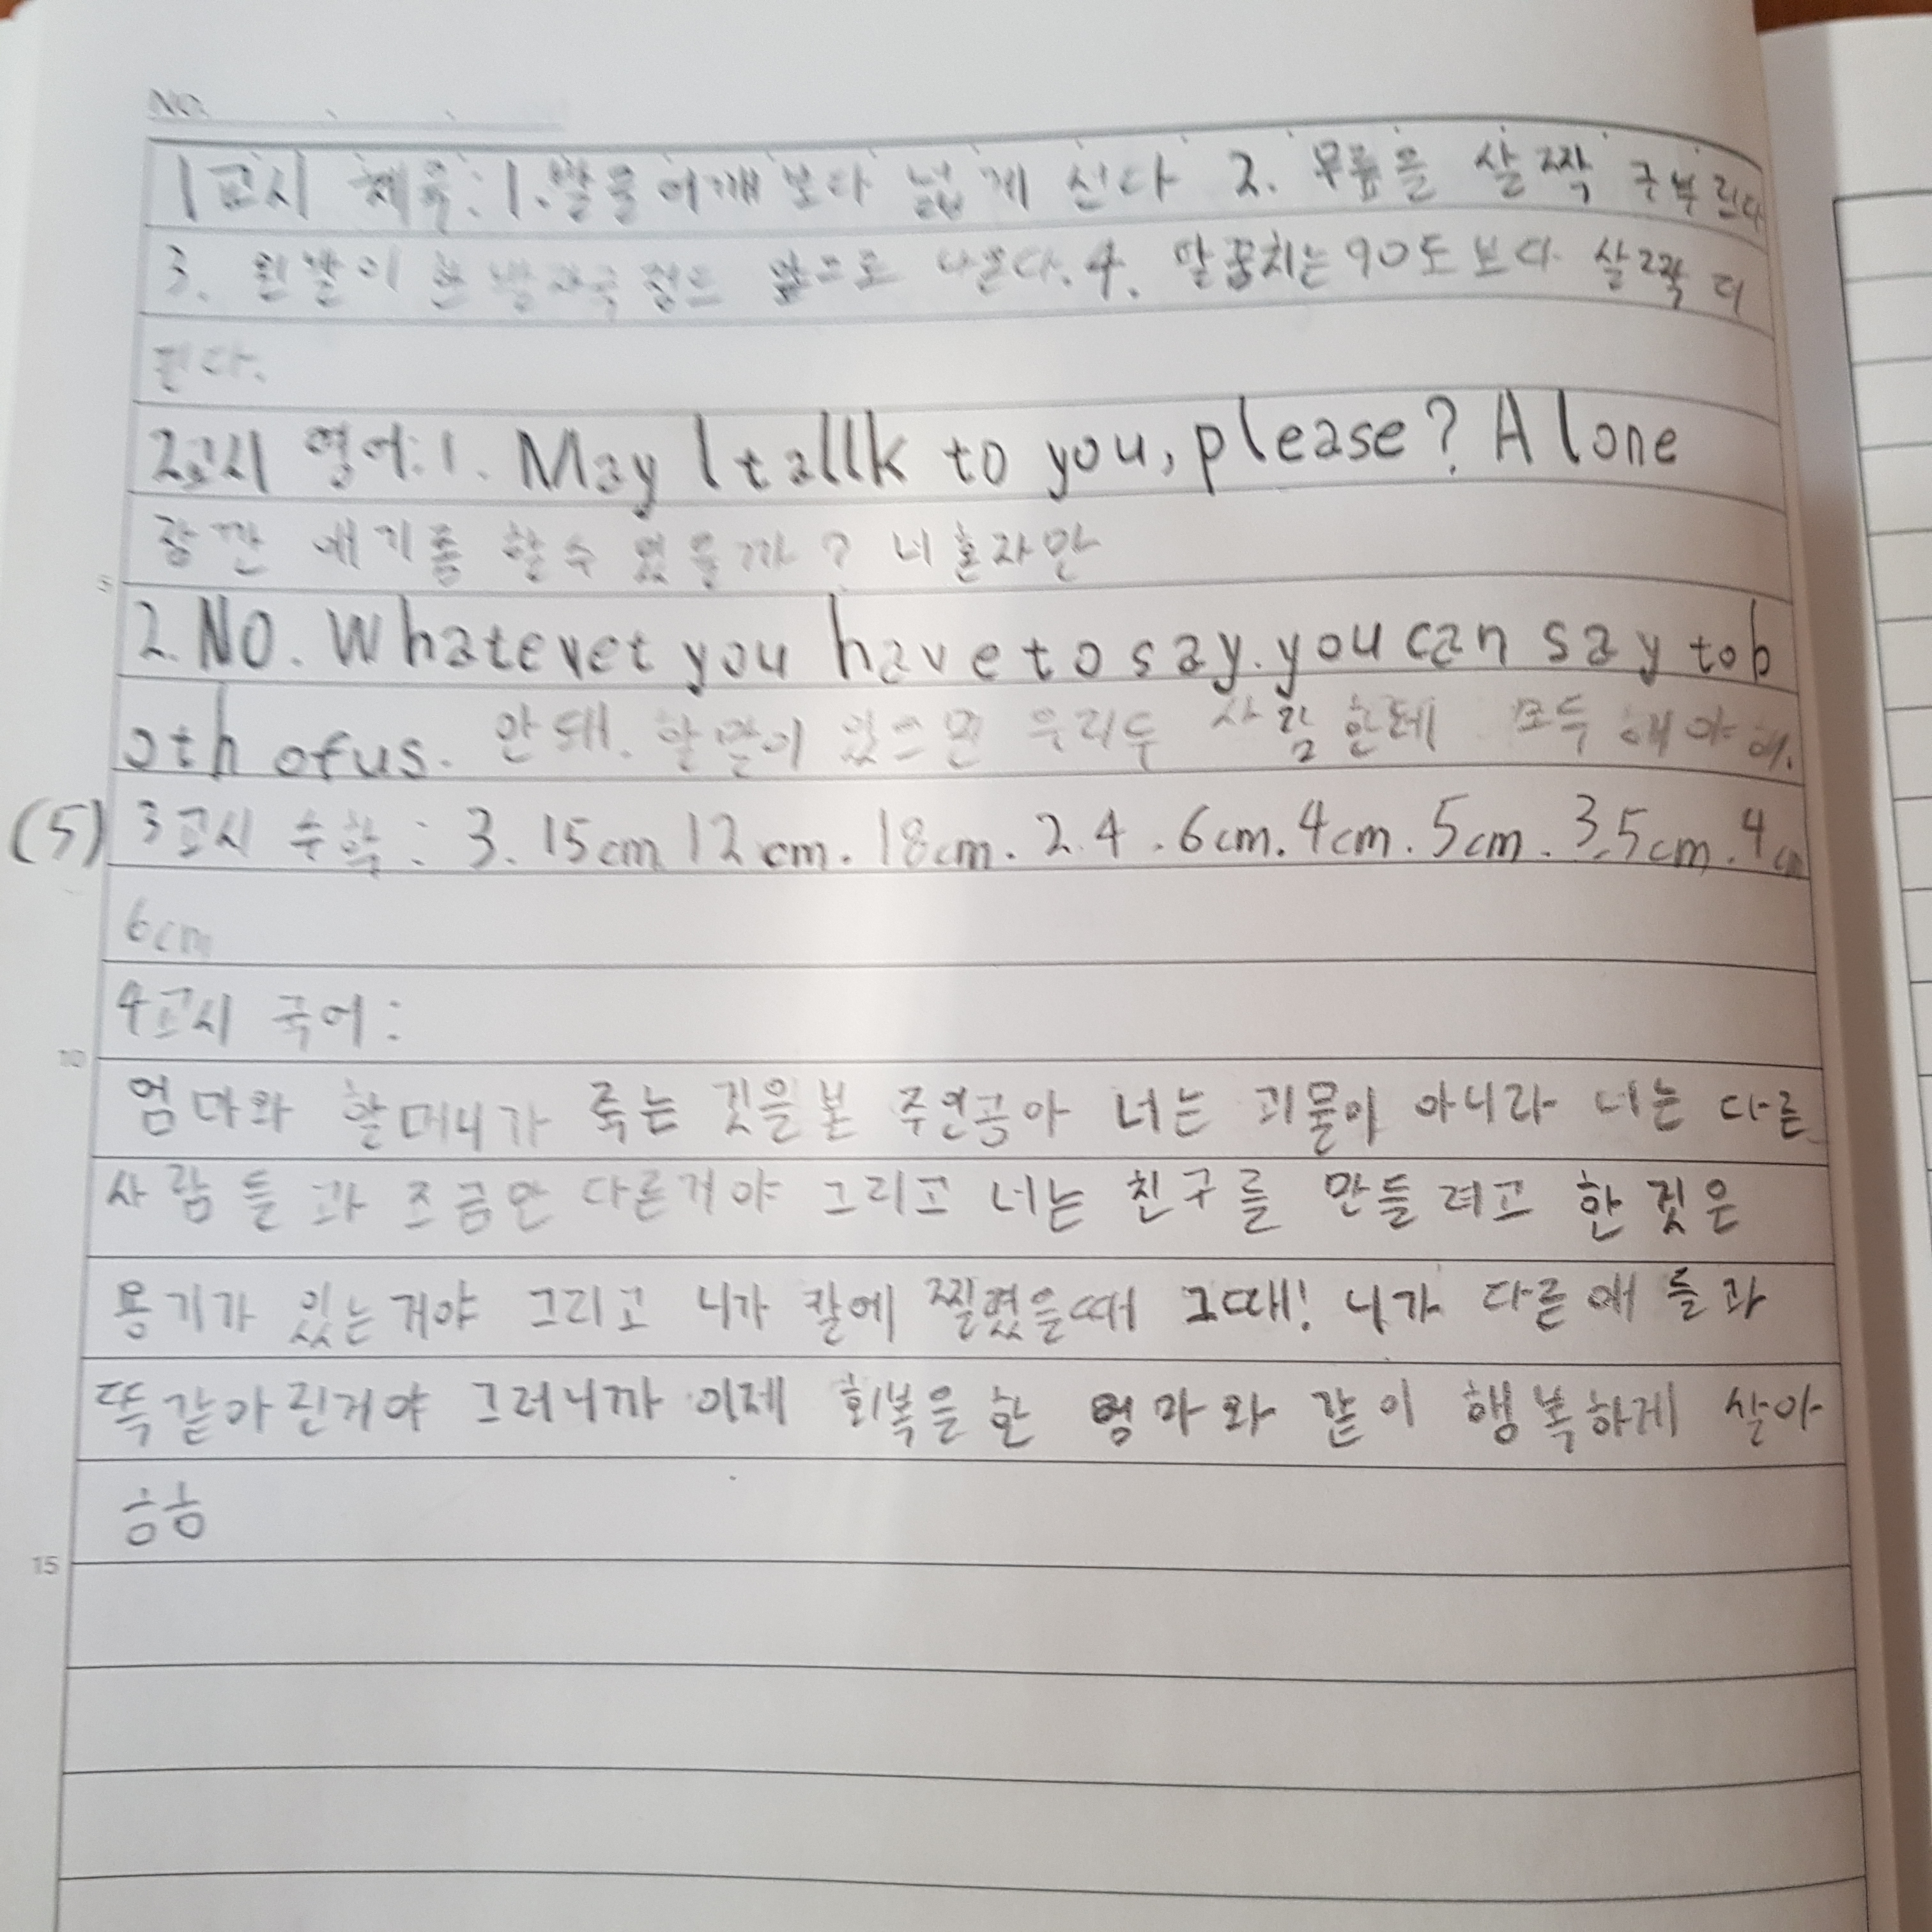 NO.
1교시 체육: 1. 발을 어깨보다 넓게 선다 2. 무릎을 살짝 구부린다
3. 왼발이 한 발자국 정도 앞으로 나온다. 4. 팔꿈치는 90도 보다 살짝 더
핀다.
2교시 영어: 1. May I tallk to you, please? Alone
잠깐 얘기좀 할수 있을까? 너 혼자만
5
2. NO. Whatever you have to say. you can say to b
oth of us. 안돼. 할말이 있으면 우리 두 사람한테 모두 해야 해.
(5) 3교시 수학: 3. 15cm 12cm. 18cm. 2. 4. 6cm. 4cm. 5cm. 3.5cm. 4cm
6cm
4교시 국어:
10
엄마와 할머니가 죽는 것을본 주인공아 너는 괴물이 아니라 너는 다른
사람들과 조금만 다른거야 그리고 너는 친구를 만들려고 한 것은
용기가 있는거야 그리고 니가 칼에 찔렸을때 그때! 니가 다른애들과
똑같아진거야 그러니까 이제 회복을한 엄마와 같이 행복하게 살아
ㅎㅎ
15